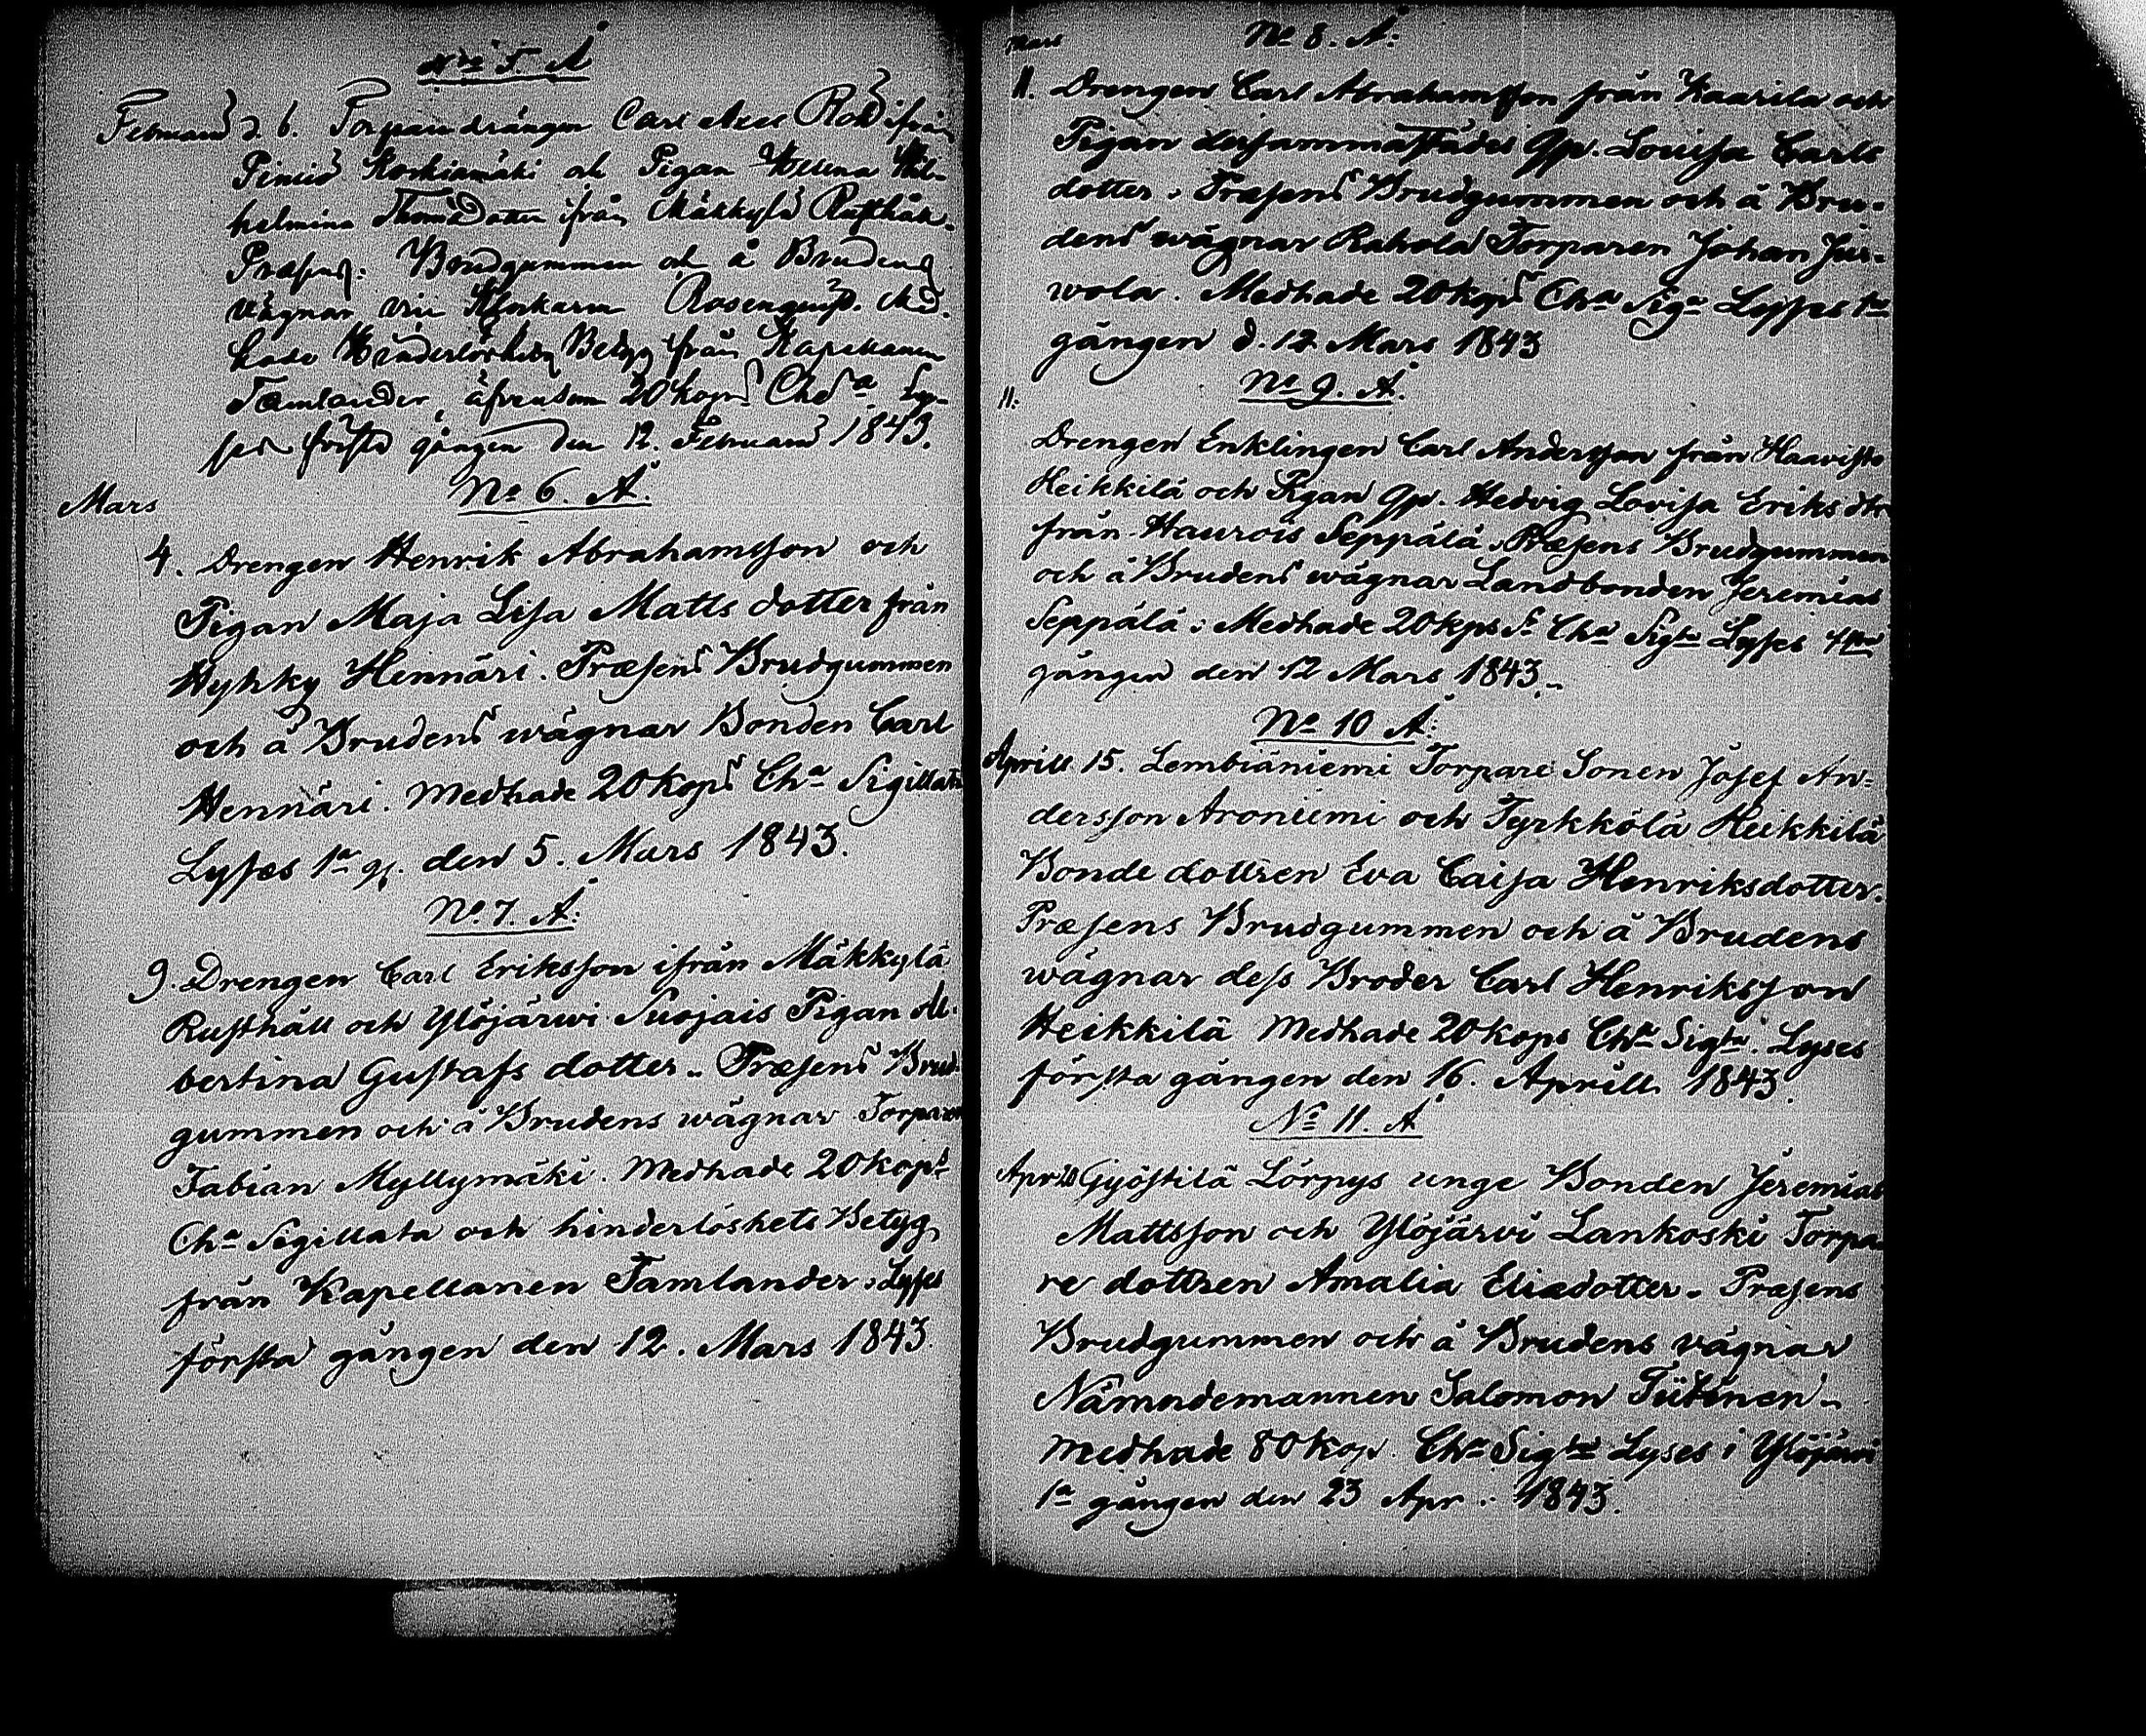 No 5 Å
Februarii d. 6. Torpardrängen Carl Axel Roth ifrån
Piniö Korkiamäki och Pigan Helena Wil-
helmina Thomædotter ifrån Mäkkylä Rusthåll.
Præsens: Brudgummen och å Brudens
vägnar Klockaren Rosenqvist. Med-
hade Hinderlöshets Betyg från Kapellanen
Tamlander, äfvensom 20 kop.s Cha Sa Ly-
ses första gången den 12. Februarii 1843.
No 6. Å.
Mars
4. Drengen Henrik Abrahamsson och
Pigan Maja Lisa Matts dotter från
Hyhky Hennäri. Præsens Brudgummen
och å Brudens wägnar Bonden Carl
Hennäri. Medhade 20 kops Cha Sigillata
Lyses 1a g. den 5. Mars 1843.
No. 7. Å:
9. Drengen Carl Eriksson ifrån Mäkkylä
Rusthåll och Ylöjärwi Suojais Pigan Al-
bertina Gustafs dotter. Præsens Brud-
gummen och å Brudens wägnar Torparen
Fabian Myllymäki. Medhade 20 kops
Cha Sigillata och hinderlöshets Betyg
från Kapellanen Tamlander, Lyses
första gången den 12. Mars 1843.
Mars No 8. Å:
11. Drengen Carl Abrahamsson från Kaarila och
Pigan dersammastädes Qp. Louisa Carls
dotter, Præsens Brudgummen och å Bru-
dens wägnar Rahola Torparen Johan Jär-
wola. Medhade 20 kops Cha Siga Lyses 1a
gången d. 12 Mars 1843
No 9. Å.
11.
Drengen Enklingen Carl Andersson från Haavisto
Heikkilä och Pigan Qp. Hedvig Lovisa Eriks dtr
från Haurois Seppälä, Præsens Brudgummen
och å Brudens wägnar Landbonden Jeremias
Seppälä; Medhade 20 kps S. Cha Sigta Lyses 1a
gången den 12 Mars 1843.
No 10 Å:
Aprill 15. Lembiäniemi Torpare Sonen Josef An-
dersson Aroniemi och Tyrkkölä Heikkilä
Bonde dottren Eva Caisa Henriksdotter.
Præsens Brudgummen och å Brudens
wägnar dess Broder Carl Henriksson
Heikkilä Medhade 20 kops Cha Sigta. Lyses
första gången den 16. Aprill 1843.
No 11. Å
Apr 20 Gyöstilä Lörpys unge Bonden Jeremias
Mattsson och Ylöjärvi Lankoski Torpa-
re dottren Amalia Eliædotter. Præsens
Brudgummen och å Brudens vägnar
Nämndemannen Salomon Tiitinen.
Medhade 80 Kop. Cha Sigta Lyses i Ylöjärvi
1a gången den 23 Apr. 1843.